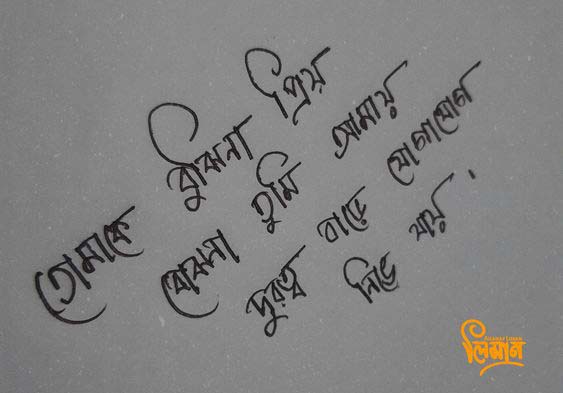 তোমাকে বুঝিনা প্রিয়
বোঝনা তুমি আমায়
দুরত্ব বাড়ে যোগাযোগ
নিভে যায়
AULAWAY LIMAN
লিমান